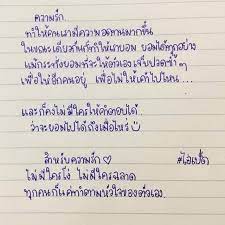 ความรัก..
ทำให้คนเรามีความอดทนมากขึ้น
ในขณะเดียวกันก็ทำให้เรายอม ยอมได้ทุกอย่าง
แม้กระทั่งยอมที่จะให้ตัวเองเจ็บปวดซ้ำๆ
เพื่อให้อีกคนอยู่ เพื่อไม่ให้เค้าไปไหน...
และก็คงไม่มีใครให้คำตอบได้
ว่าจะยอมไปได้ถึงเมื่อไหร่
สำหรับความรัก ♡
ไม่มีใครโง่ ไม่มีใครฉลาด
ทุกคนก็แค่ทำตามหัวใจของตัวเอง.